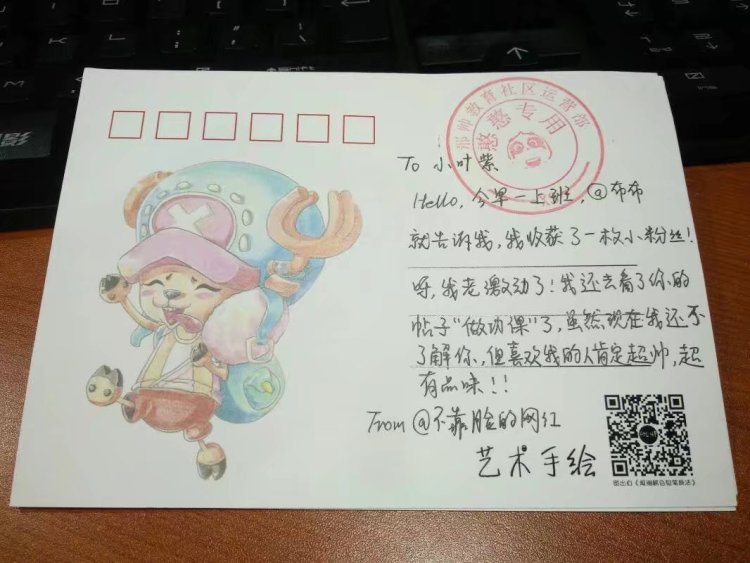 邢帅教育社区运营部
憨憨专用
To 小叶紫
Hello, 今早一上班, @布布
就告诉我, 我收获了一枚小粉丝!
呀, 我老激动了! 我还去看了你的
帖子“做功课”了, 虽然现在我还不
了解你, 但喜欢我的人肯定超帅, 超
有品味!!
From @不靠脸的网红
艺术手绘